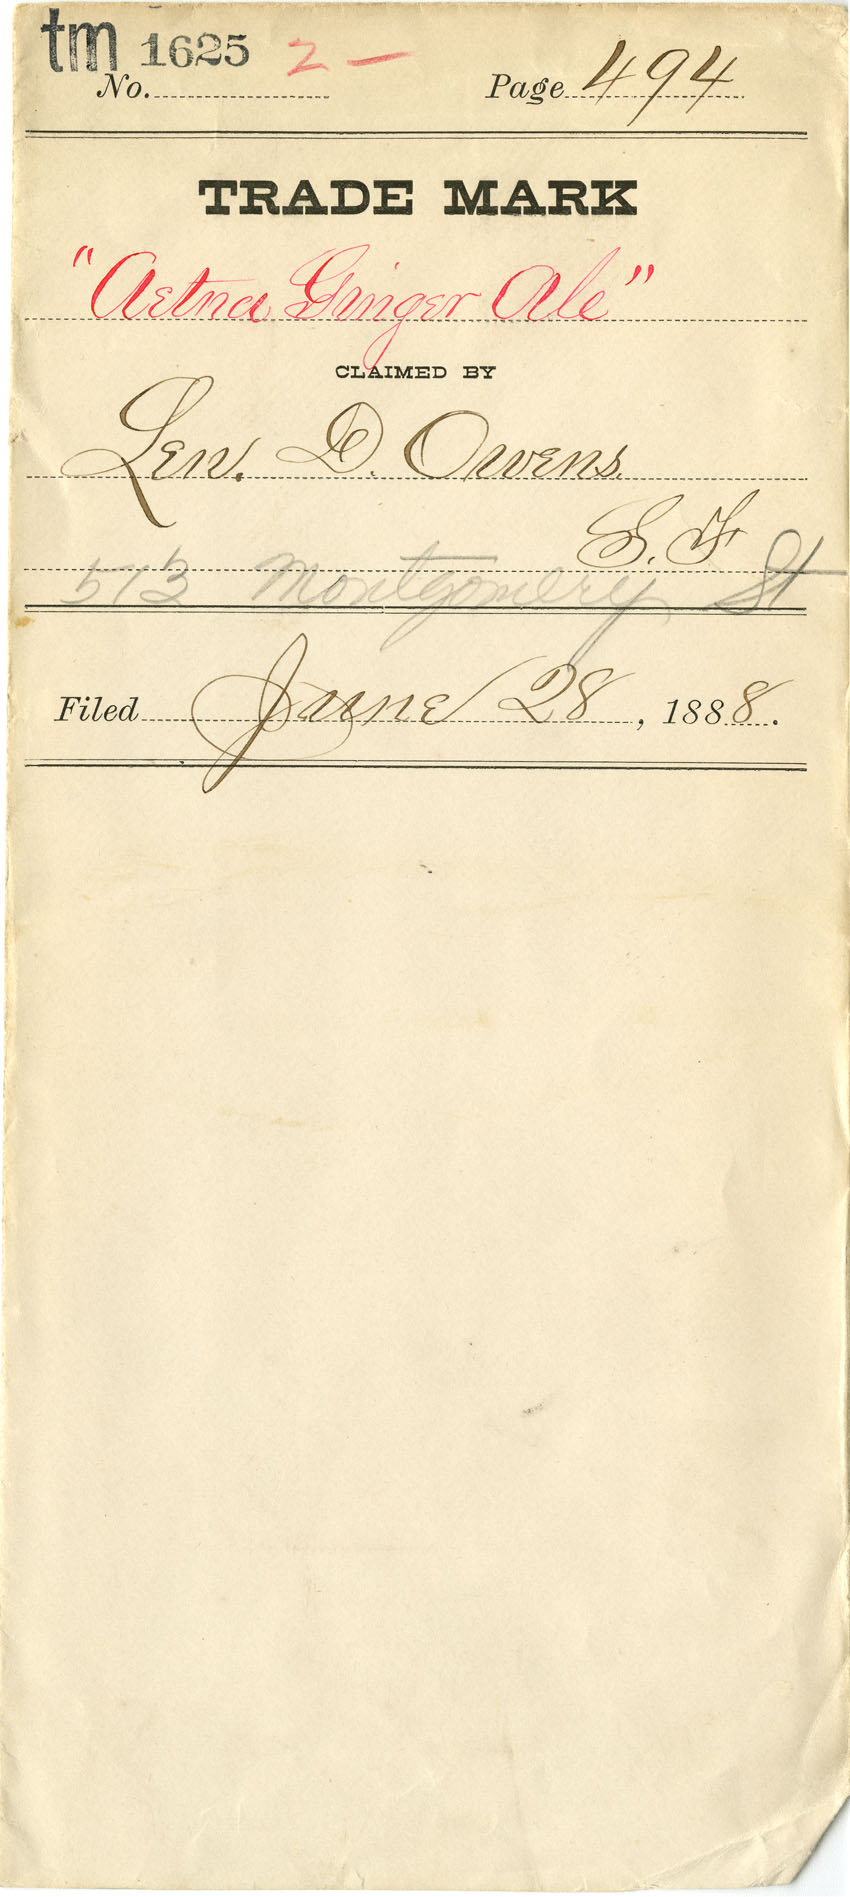 tm 1625 2 —
No. Page 494
TRADE MARK
"Aetna Ginger Ale"
CLAIMED BY
Len. D. Owens.
S. F
513 Montgomery St
Filed June 28, 1888.